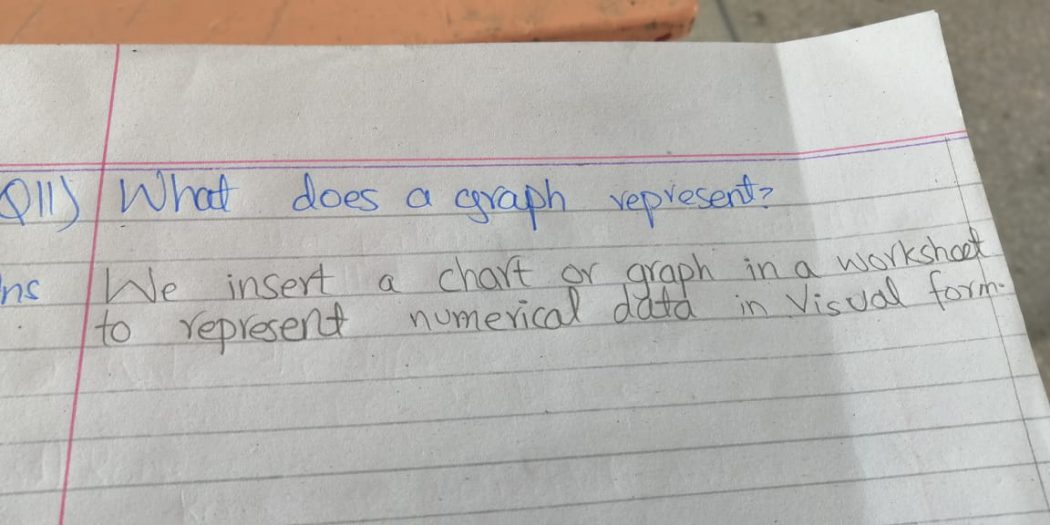 Q11) What does a graph represent?
ns We insert a chart or graph in a worksheet
to represent numerical data in Visual form.